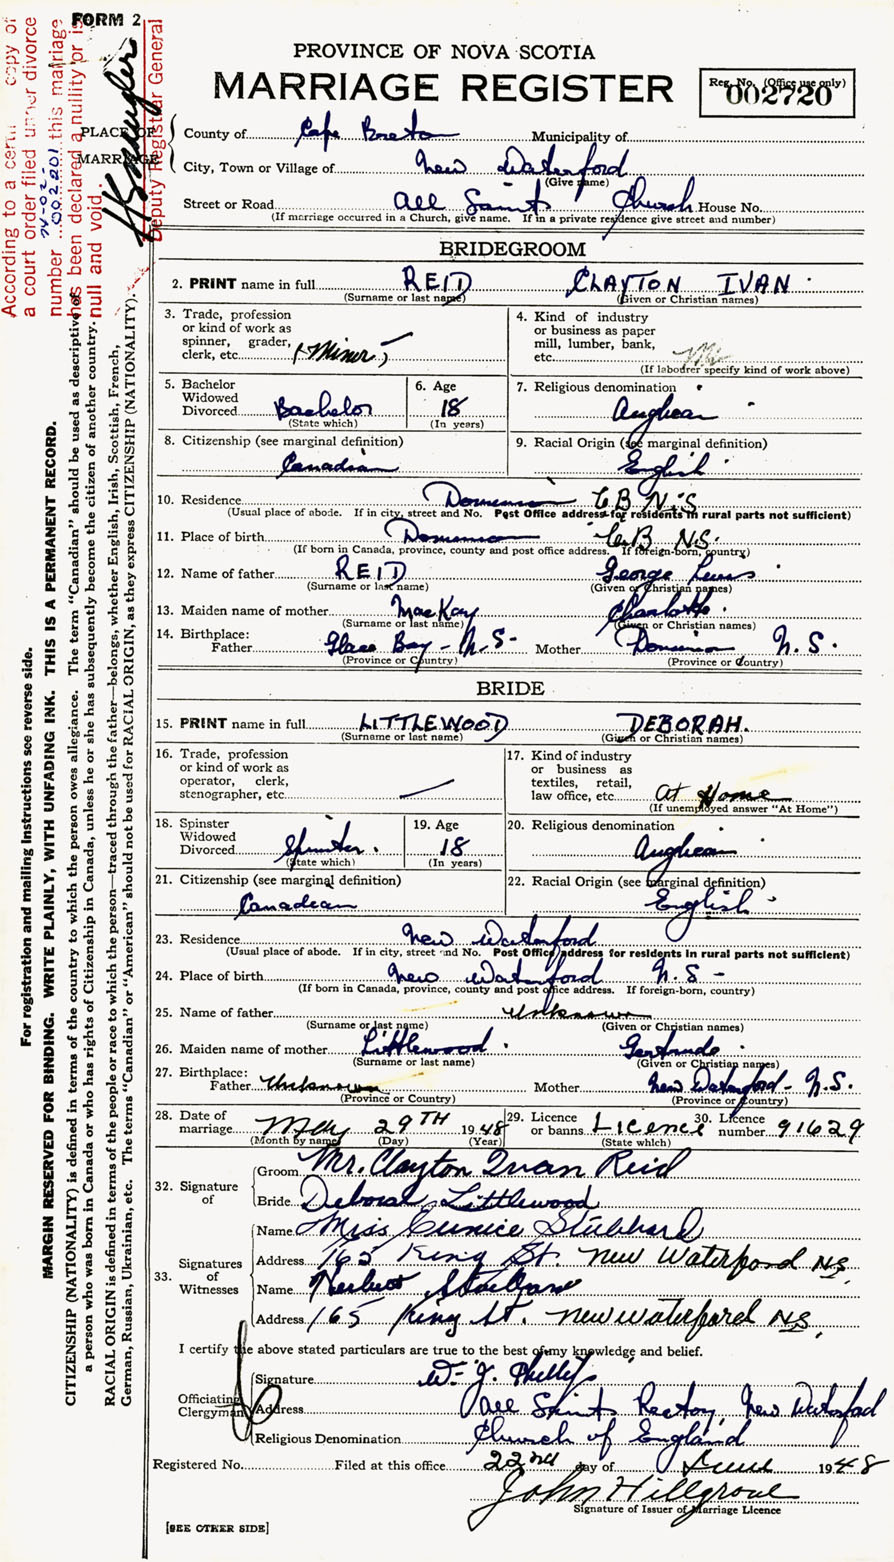 FORM 2
According to a copy of
a court order filed under divorce
number 002201 this marriage
has been declared a nullity or is
null and void.
Deputy Registrar General
PROVINCE OF NOVA SCOTIA
MARRIAGE REGISTER
Reg. No. (Office use only)
002720
PLACE OF MARRIAGE
County of Cape Breton Municipality of
City, Town or Village of New Waterford
(Give name)
Street or Road All Saints Church House No.
(If marriage occurred in a Church, give name. If in a private residence give street and number)
BRIDEGROOM
2. PRINT name in full REID CLAYTON IVAN
(Surname or last name) (Given or Christian names)
3. Trade, profession
or kind of work as
spinner, grader,
clerk, etc. (Miner)
4. Kind of industry
or business as paper
mill, lumber, bank,
etc.
(If labourer specify kind of work above)
5. Bachelor
Widowed
Divorced Bachelor
(State which)
6. Age
18
(In years)
7. Religious denomination
Anglican
8. Citizenship (see marginal definition)
Canadian
9. Racial Origin (see marginal definition)
English
10. Residence Dominion C B N.S
(Usual place of abode. If in city, street and No. Post Office address for residents in rural parts not sufficient)
11. Place of birth Dominion C.B N.S.
(If born in Canada, province, county and post office address. If foreign-born, country)
12. Name of father REID George Lewis
(Surname or last name) (Given or Christian names)
13. Maiden name of mother MacKay Charlotte
(Surname or last name) (Given or Christian names)
14. Birthplace:
Father Glace Bay - N.S- Mother Dominion N.S.
(Province or Country) (Province or Country)
BRIDE
15. PRINT name in full LITTLEWOOD DEBORAH.
(Surname or last name) (Given or Christian names)
16. Trade, profession
or kind of work as
operator, clerk,
stenographer, etc.
17. Kind of industry
or business as
textiles, retail,
law office, etc. At Home
(If unemployed answer "At Home")
18. Spinster
Widowed
Divorced Spinster.
(State which)
19. Age
18
(In years)
20. Religious denomination
Anglican
21. Citizenship (see marginal definition)
Canadian
22. Racial Origin (see marginal definition)
English
23. Residence New Waterford
(Usual place of abode. If in city, street and No. Post Office address for residents in rural parts not sufficient)
24. Place of birth New Waterford N.S-
(If born in Canada, province, county and post office address. If foreign-born, country)
25. Name of father Unknown
(Surname or last name) (Given or Christian names)
26. Maiden name of mother Littlewood Gertrude
(Surname or last name) (Given or Christian names)
27. Birthplace:
Father Unknown Mother New Waterford - N.S.
(Province or Country) (Province or Country)
28. Date of
marriage May 29TH 1948
(Month by name) (Day) (Year)
29. Licence
or banns Licence
(State which)
30. Licence
number 91629
32. Signature
of
Groom Mr. Clayton Ivan Reid
Bride Deborah Littlewood
33. Signatures
of
Witnesses
Name Miss Eunice Stubbard
Address 165 King St. New Waterford NS.
Name Herbert
Address 165 King St. New Waterford NS.
I certify the above stated particulars are true to the best of my knowledge and belief.
Officiating
Clergyman
Signature W. J. Phillips
Address All Saints Rectory, New Waterford
Religious Denomination Church of England
Registered No. Filed at this office 22nd day of June 1948
John Hillgrove
Signature of Issuer of Marriage Licence
[SEE OTHER SIDE]
For registration and mailing instructions see reverse side.
MARGIN RESERVED FOR BINDING. WRITE PLAINLY, WITH UNFADING INK. THIS IS A PERMANENT RECORD.
CITIZENSHIP (NATIONALITY) is defined in terms of the country to which the person owes allegiance. The term "Canadian" should be used as descriptive of
a person who was born in Canada or who has rights of Citizenship in Canada, unless he or she has subsequently become the citizen of another country.
RACIAL ORIGIN is defined in terms of the people or race to which the person—traced through the father—belongs, whether English, Irish, Scottish, French,
German, Russian, Ukrainian, etc. The terms "Canadian" or "American" should not be used for RACIAL ORIGIN, as they express CITIZENSHIP (NATIONALITY).